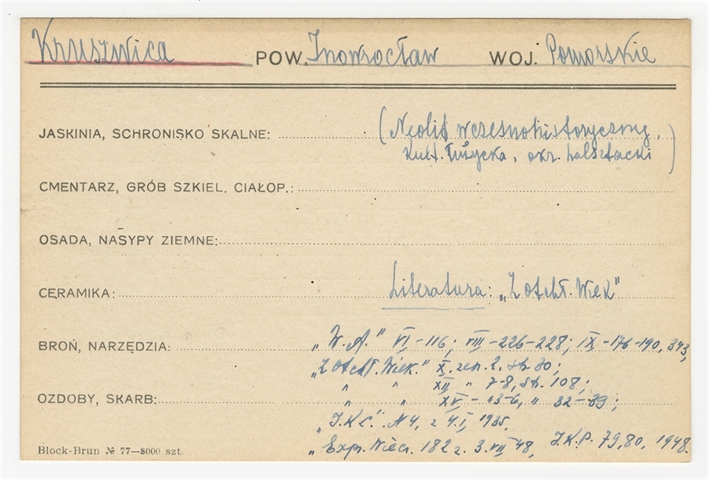 Kruszwica POW. Inowrocław WOJ. Pomorskie
JASKINIA, SCHRONISKO SKALNE: (Neolit wczesnohistoryczny,
kult. łużycka, okr. halsztacki)
CMENTARZ, GRÓB SZKIEL. CIAŁOP.:
OSADA, NASYPY ZIEMNE:
CERAMIKA: Literatura: „Z otchł. Wiek"
BROŃ, NARZĘDZIA: „W.A." VI-116; VIII-226-228; IX-176-190, 343;
„Z Otchł. Wiek." X, zesz. 2, str. 30;
„ „ XII „ 7-8, str. 108;
OZDOBY, SKARB: „ „ XV - 5-6, „ 32-39;
„I.K.C." N4, z 4.I, 1935.
Block-Brun № 77—8000 szt. „Expr. Wiecz. 182 z 3.VII 48, I.K.P. 79,80, 1948.